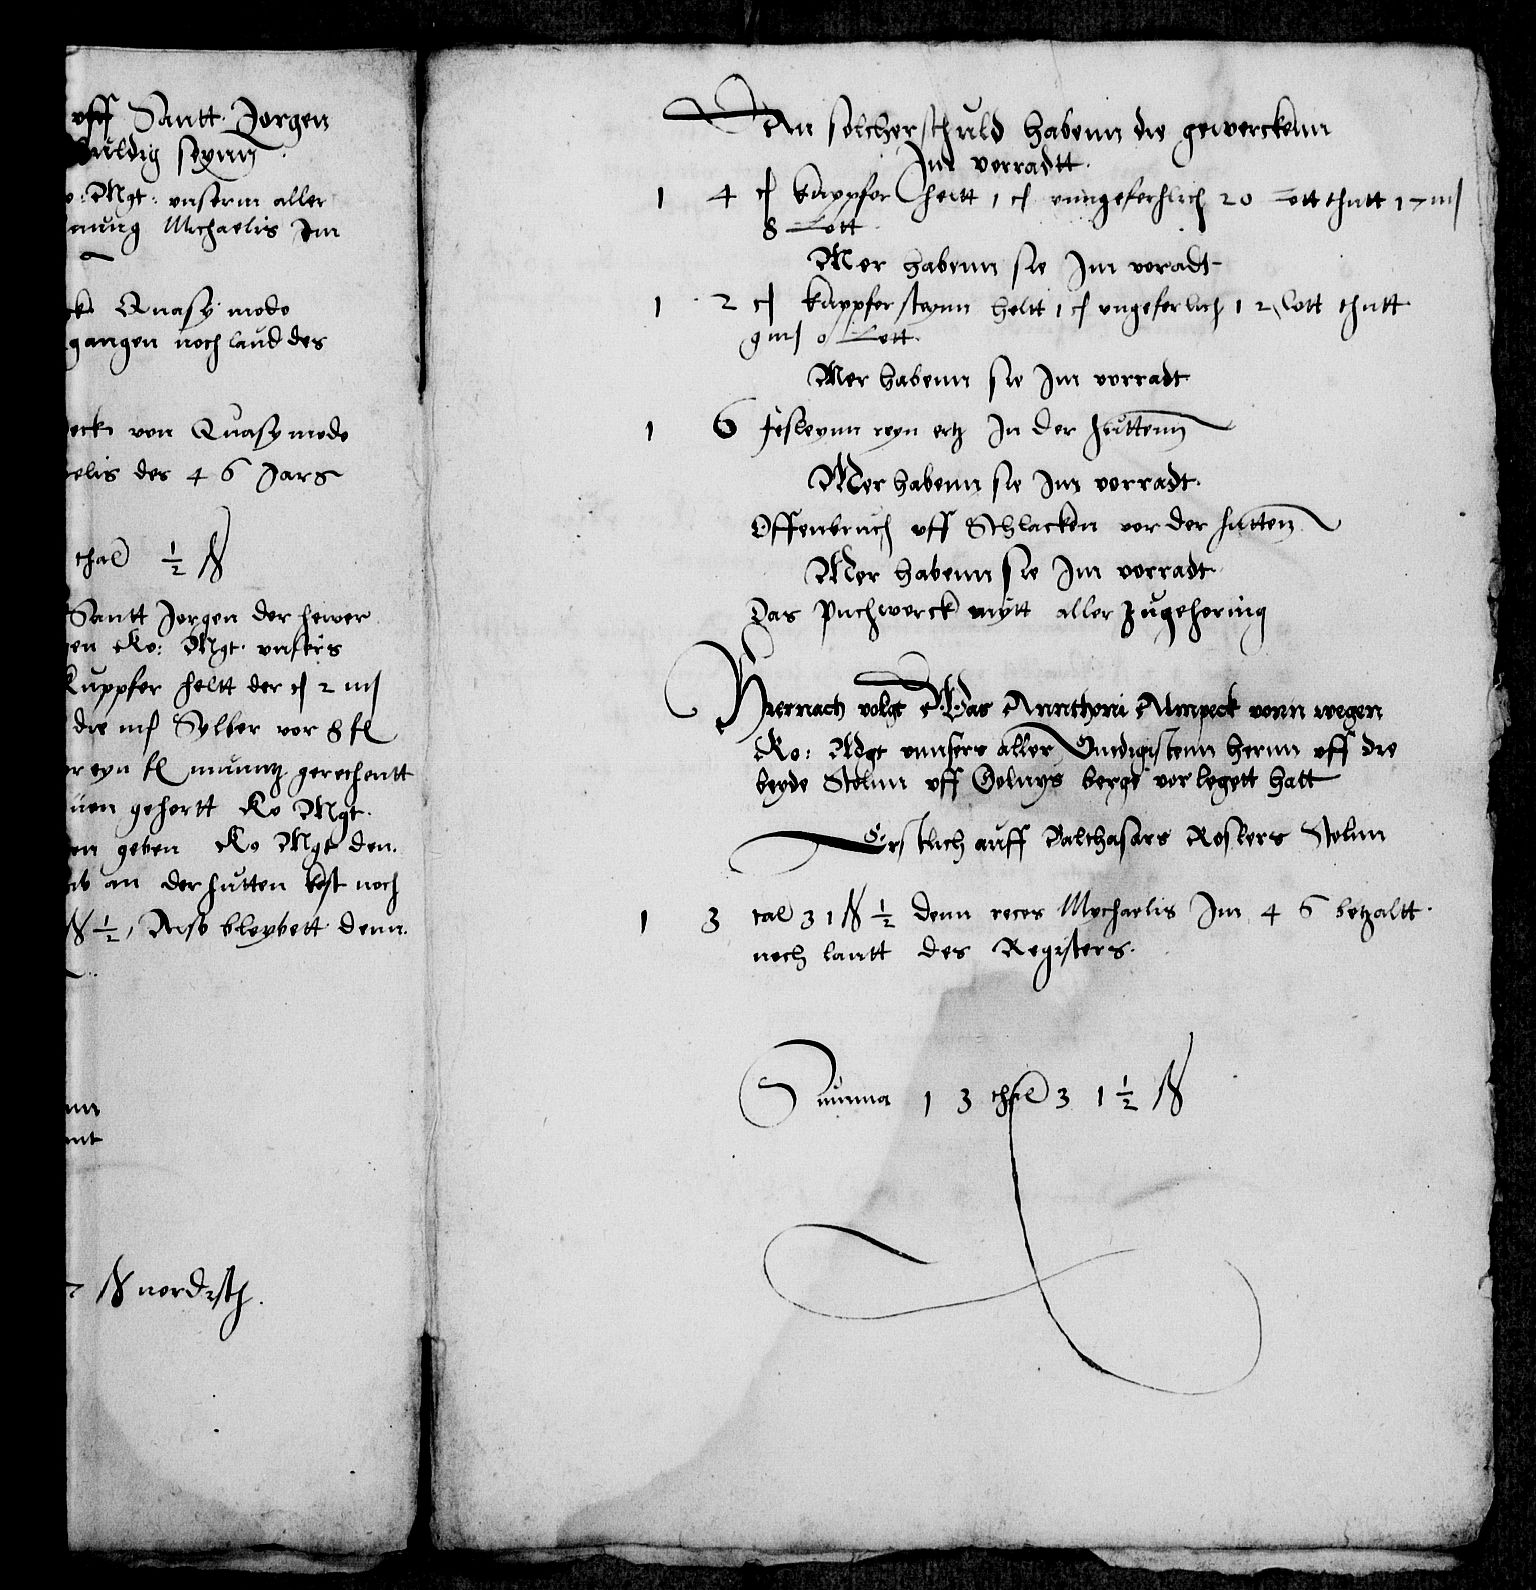 uff Santt Jorgen
huldig seynn
Mgt: unserm aller
nung Michaelis Im
Quasy modo
gangen noch laud des
von Quasy modo
elis des 4 6 Jars
thal ½ ₰
Santt Jorgen der hewer
Ko: Mgt unsers
Kuppfer heltt der 2
die Sylber vor 8 fl
eyn fl muuntz gerechentt
gehortt Ko Mgt.
geben Ko Mgt den.
an der hutten kost noch
₰ ½, Also bleybett denn.
₰ nordisch.
An solcher schuld habenn die gewerckenn
Im vorradtt.
1 4 c kuppfer heltt 1 c unngeferhlich 20 Lott thutt 17 m
8 Lott
Mer habenn sie Im voradt
1 2 c kuppfersteynn heltt 1 c ungeferlich 1 2 Lott thutt
9 m 0 Lott.
Mer habenn sie Im vorradt
1 6 fesleynn reyn ertz In der huttenn
Mer habenn sie Im vorradt.
Offenbruch uff Schlacken vor der hutten
Mer habenn sie Im vorradt
Das Puchwerck mytt aller zugehoring
Hiernach volgt Was Annthoni Almpeck vonn wegen
Ko: Mgt unnsers aller Gnedigistenn hernn uff die
beyde Stolnn uff Golnys berge vorlegett hatt
Erstlich auff Balthasars Roslers Stolnn
1 3 tal 3 1 ₰ ½ denn reces Mychaelis Im 4 6 betzaltt.
noch lautt des Registers.
Summa 1 3 thal 3 1 ½ ₰